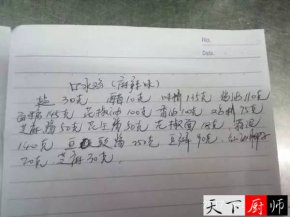 No.
Date.
口水鸡(麻辣味)
盐 30克 醋10克 味精135克 110克
145克 花椒油100克 香油40克 75克
芝麻酱50克 花生酱50克 花椒面18克
140克 豆豉酱250克 豆瓣90克
20克 芝麻30克.
天下厨师